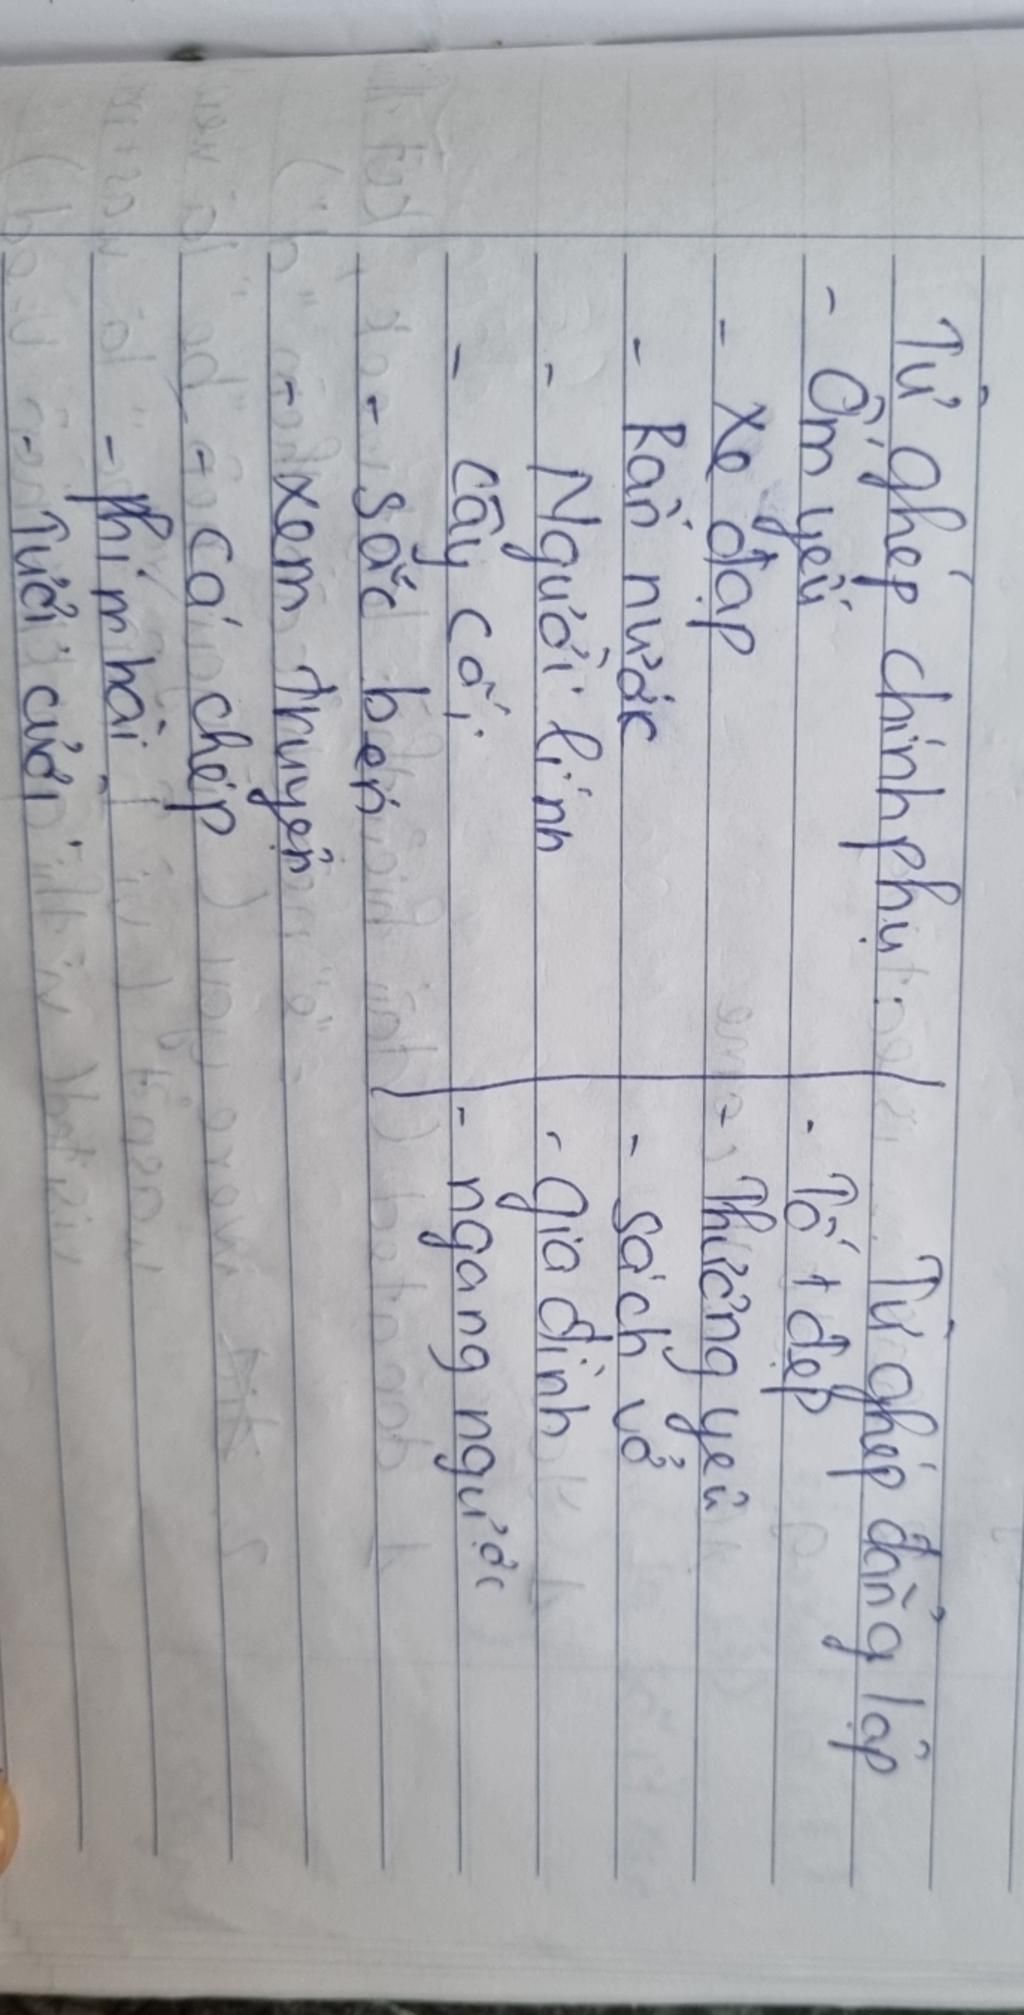 Từ ghép chính phụ Từ ghép đẳng lập
- Ốm yếu - Tốt đẹp
- Xe đạp - Thương yêu
- Rắn nước - sách vở
- Người lính - Gia đình
- Cây cối - ngang ngược
- sắc bén
- xem truyện
- cá chép
- phim hài
- Tươi cười